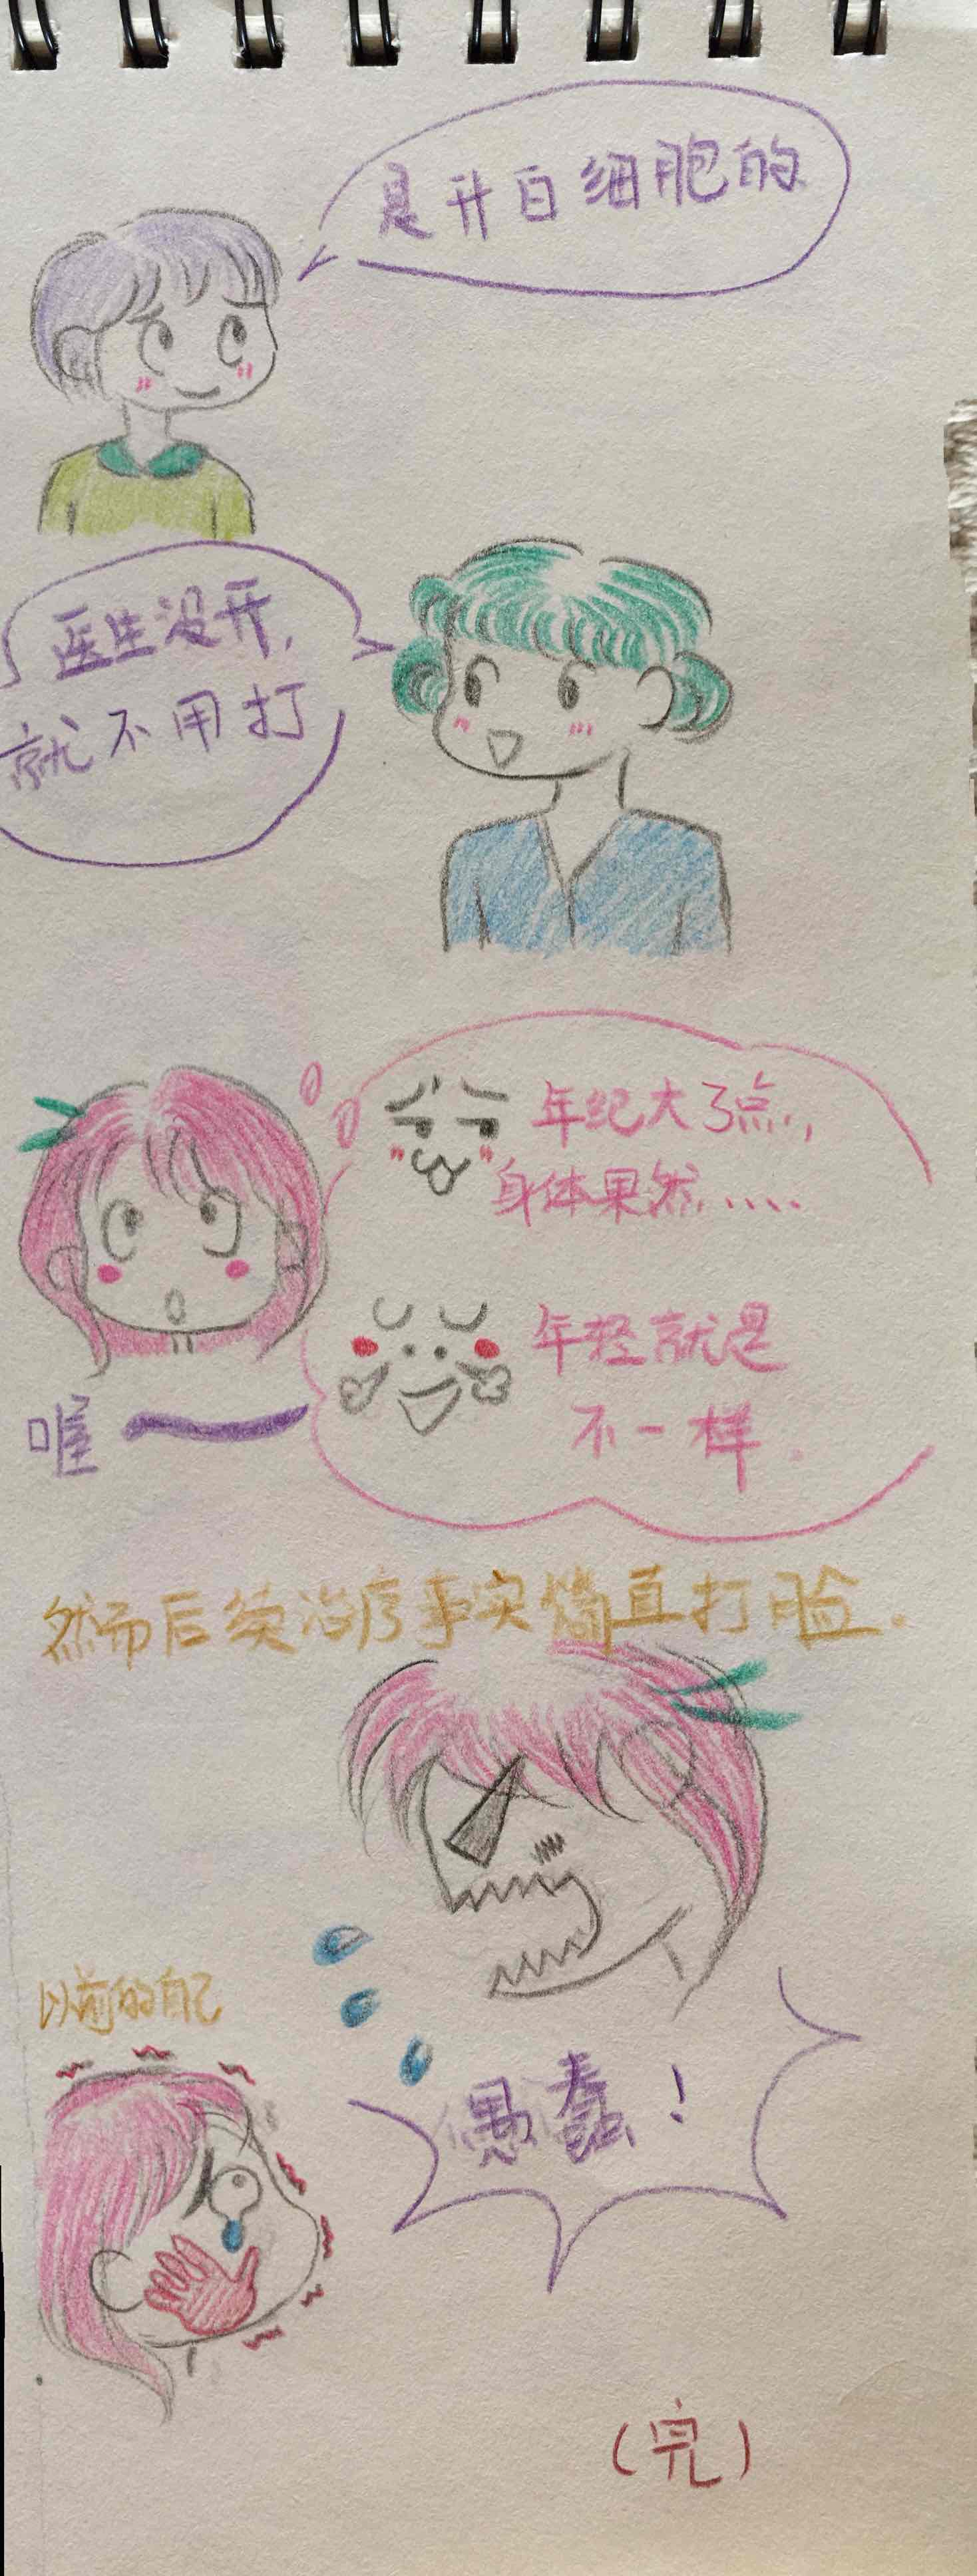 是升白细胞的
医生没开,
就不用打
年纪大了点,
身体果然.....
年轻就是
不一样.
喔
然而后续治疗事实简直打脸.
以前的自己
愚蠢!
(完)